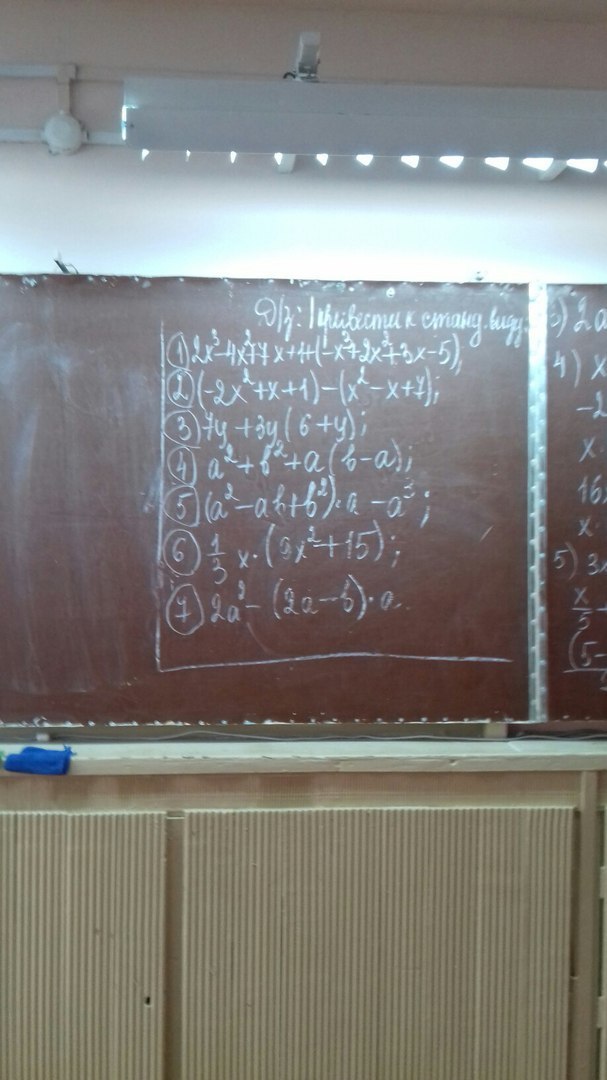 Д/з: Привести к станд. виду:
① 2x³-4x²+7x+4+(-x³+2x²+3x-5);
② (-2x²+x+1)-(x²-x+7);
③ 7y+3y(6+y);
④ a²+b²+a(b-a);
⑤ (a²-ab+b²)·a-a³;
⑥ 1/3 x·(9x²+15);
⑦ 2a²-(2a-b)·a
3) 2a
4) x
-2
x
16
x
5) 3x
x/5
(5-